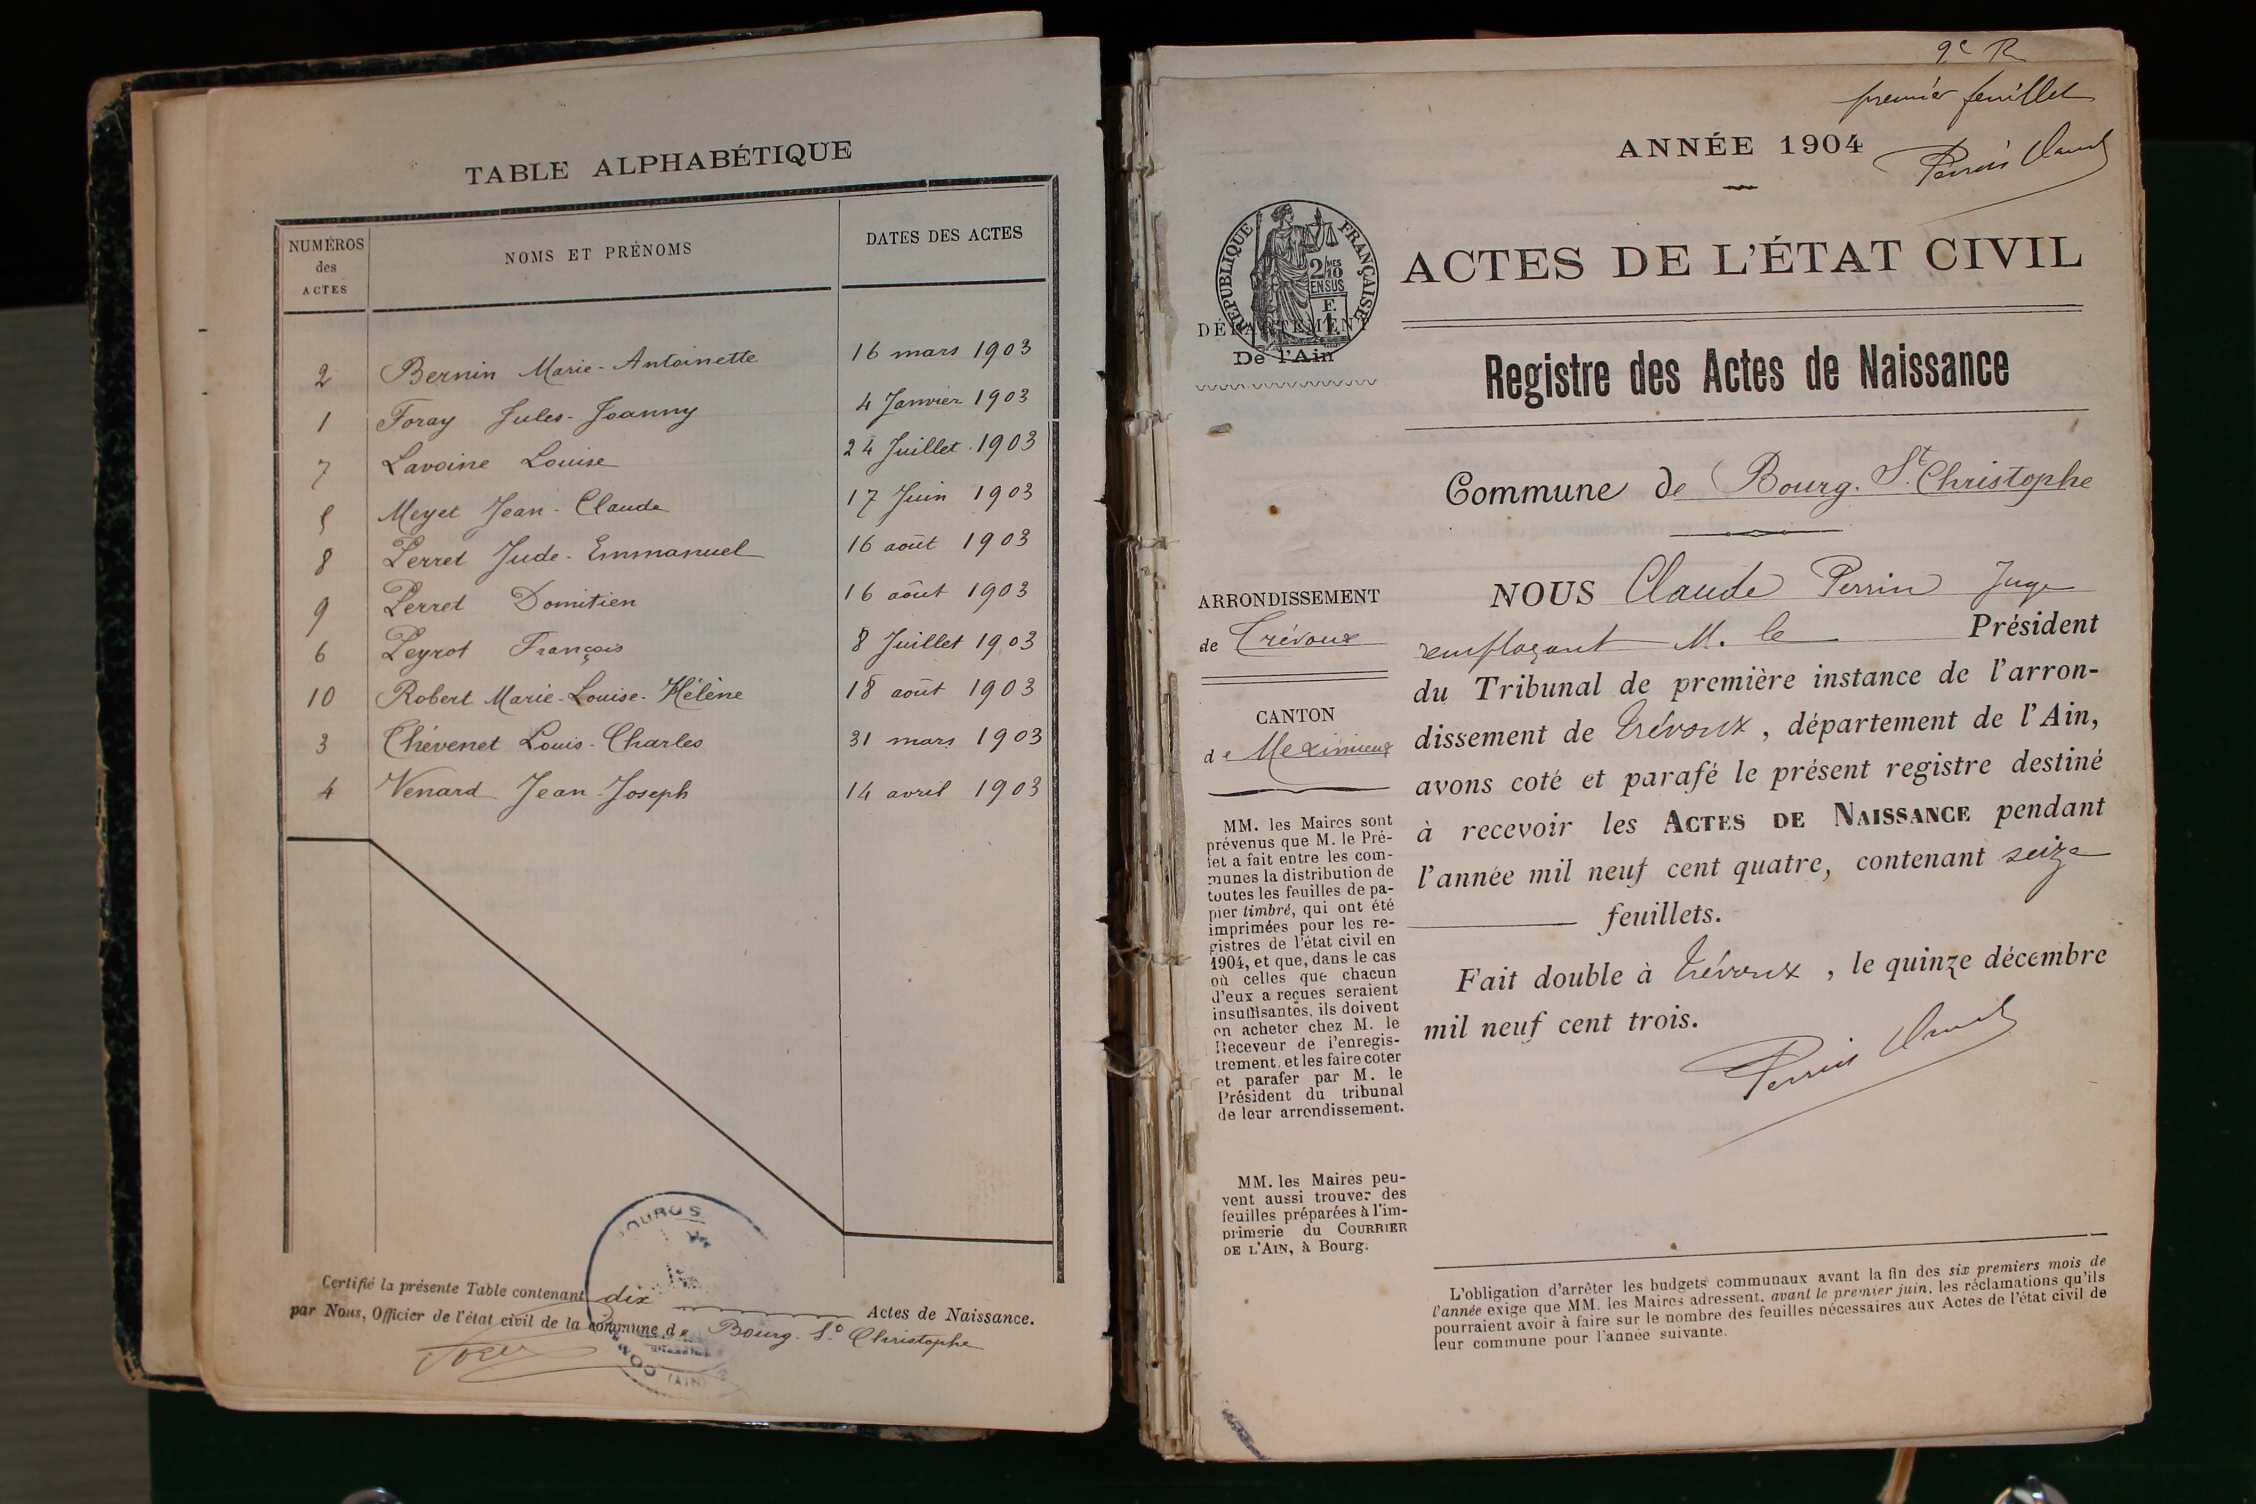 TABLE ALPHABÉTIQUE
NUMÉROS des ACTES NOMS ET PRÉNOMS DATES DES ACTES
2 Bernin Marie-Antoinette 16 mars 1903
1 Foray Jules-Joanny 4 Janvier 1903
7 Lavoine Louise 24 Juillet 1903
5 Meyet Jean-Claude 17 Juin 1903
8 Perret Jude-Emmanuel 16 août 1903
9 Perret Domitien 16 août 1903
6 Peyrot François 8 Juillet 1903
10 Robert Marie-Louise-Hélène 18 août 1903
3 Thévenet Louis-Charles 31 mars 1903
4 Venard Jean-Joseph 14 avril 1903
Certifié la présente Table contenant dix Actes de Naissance.
par Nous, Officier de l'état civil de la commune de Bourg-St Christophe
(AIN)
9e R
premier feuillet
Perrin Claude
ANNÉE 1904
RÉPUBLIQUE FRANÇAISE
2/10 EN SUS
ACTES DE L'ÉTAT CIVIL
DÉPARTEMENT
De l'Ain
Registre des Actes de Naissance
Commune de Bourg-St Christophe
ARRONDISSEMENT
de Trévoux
CANTON
de Meximieux
MM. les Maires sont
prévenus que M. le Pré-
fet a fait entre les com-
munes la distribution de
toutes les feuilles de pa-
pier timbré, qui ont été
imprimées pour les re-
gistres de l'état civil en
1904, et que, dans le cas
où celles que chacun
d'eux a reçues seraient
insuffisantes, ils doivent
en acheter chez M. le
Receveur de l'enregis-
trement, et les faire coter
et parafer par M. le
Président du tribunal
de leur arrondissement.
MM. les Maires peu-
vent aussi trouver des
feuilles préparées à l'im-
primerie du COURRIER
DE L'AIN, à Bourg.
NOUS Claude Perrin Juge
remplaçant M. le Président
du Tribunal de première instance de l'arron-
dissement de Trévoux, département de l'Ain,
avons coté et parafé le présent registre destiné
à recevoir les ACTES DE NAISSANCE pendant
l'année mil neuf cent quatre, contenant seize
feuillets.
Fait double à Trévoux, le quinze décembre
mil neuf cent trois.
Perrin Claude
L'obligation d'arrêter les budgets communaux avant la fin des six premiers mois de
l'année exige que MM. les Maires adressent, avant le premier juin, les réclamations qu'ils
pourraient avoir à faire sur le nombre des feuilles nécessaires aux Actes de l'état civil de
leur commune pour l'année suivante.